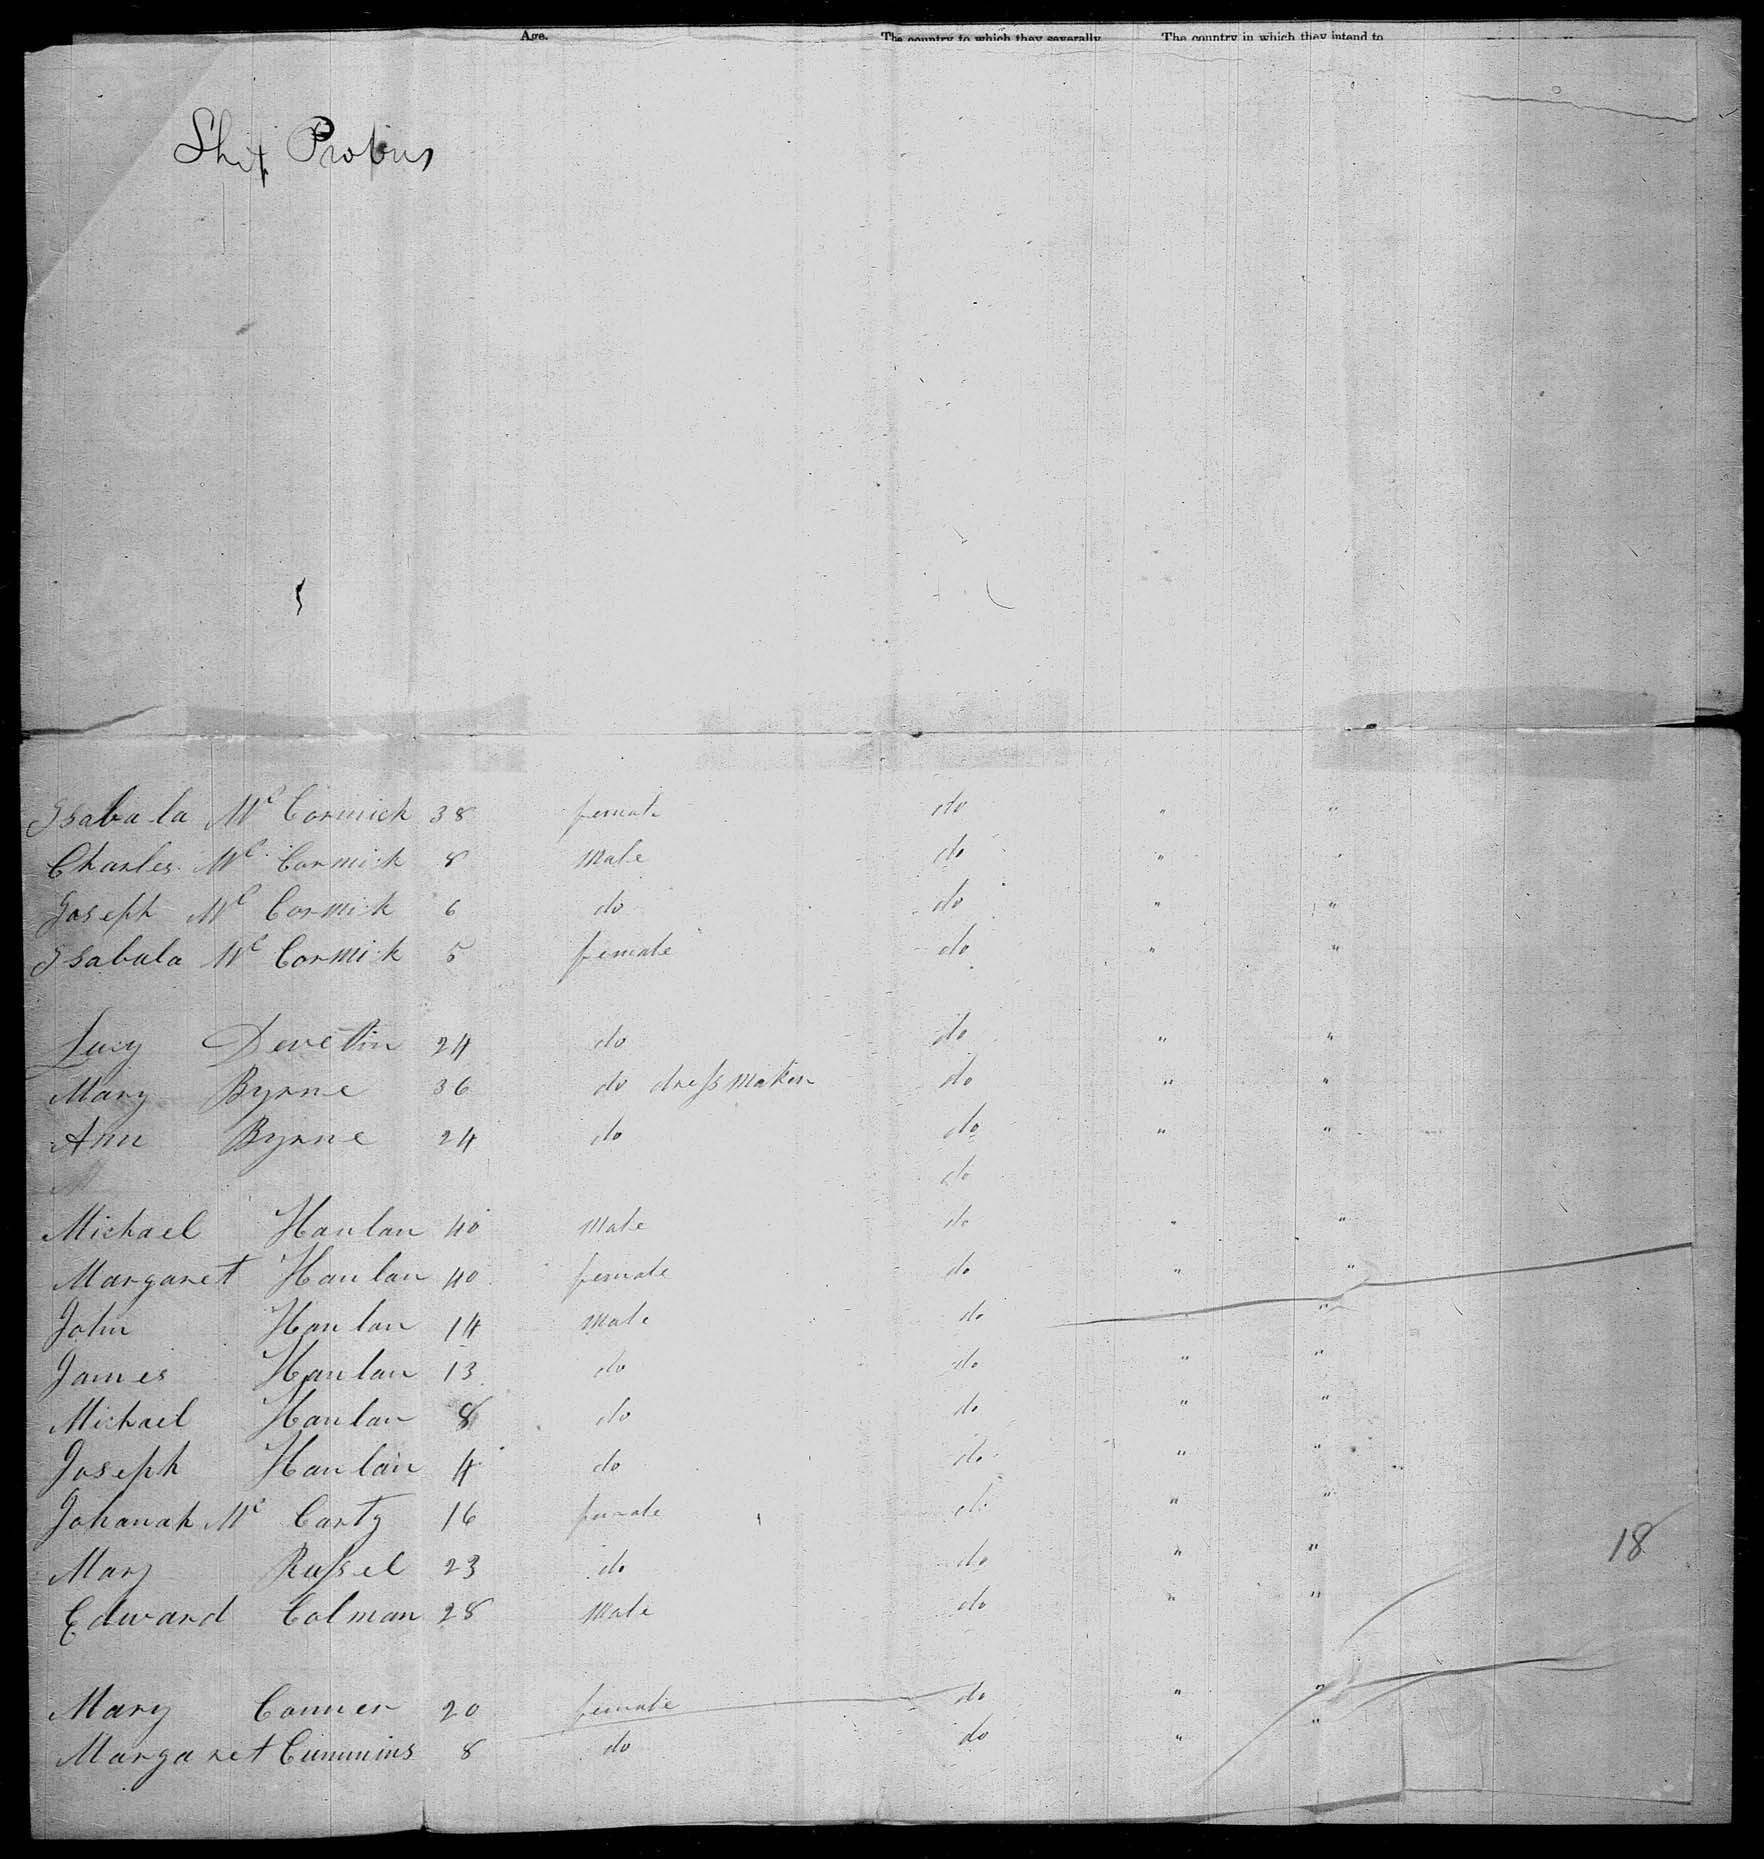 Age. The country to which they severally The country in which they intend to
Ship Probus
Isabala Mc Cormick 38 female do " "
Charles Mc Cormick 8 Male do " "
Joseph Mc Cormick 6 do do " "
Isabala Mc Cormick 5 female do " "
Lucy Devetin 24 do do " "
Mary Byrne 36 do dressmaker do " "
Ann Byrne 24 do do " "
M do
Michael Hanlan 40 Male do " "
Margaret Hanlan 40 female do " "
John Hanlan 14 Male do " "
James Hanlan 13 do do " "
Michael Hanlan 8 do do " "
Joseph Hanlan 4 do do " "
Johanah Mc Carty 16 female do " "
Mary Russel 23 do do " "
18
Edward Colman 28 Male do " "
Mary Conner 20 female do " "
Margaret Cummins 8 do do " "